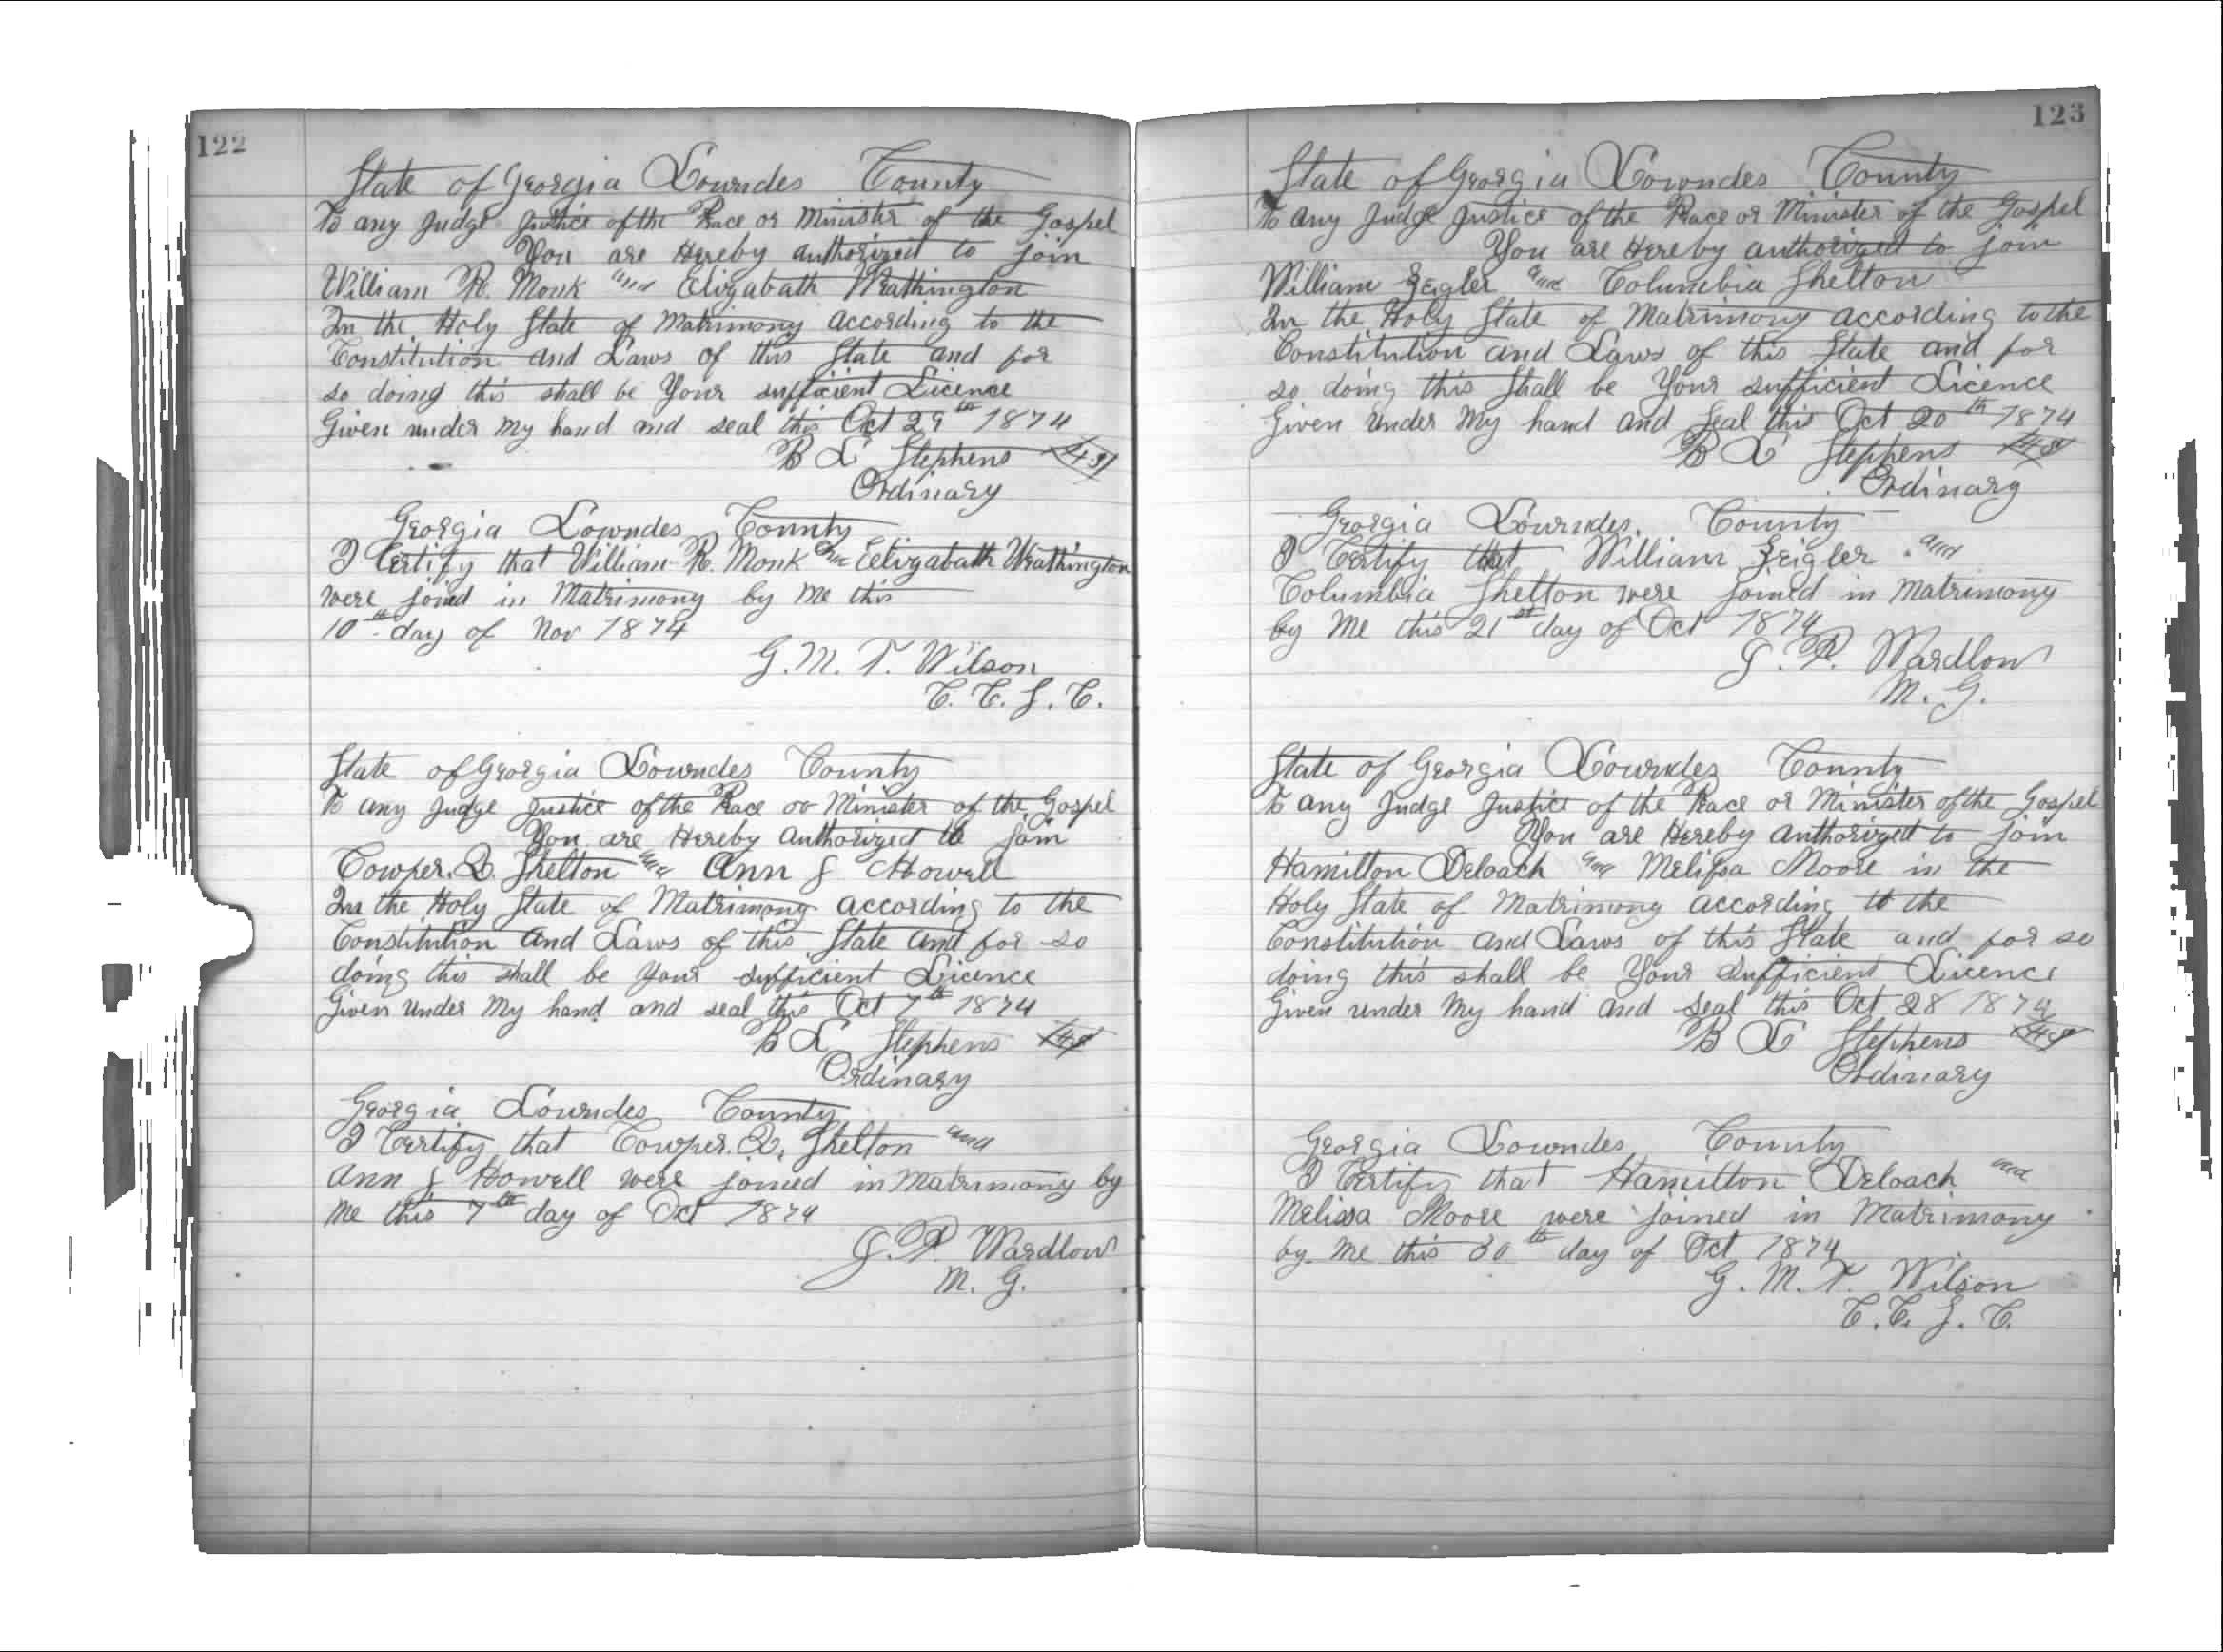 122
State of Georgia Lowndes County
To any Judge Justice of the Peace or Minister of the Gospel
You are Hereby authorized to join
William R. Monk and Elizabath Weathington
In the Holy State of Matrimony according to the
Constitution and Laws of this State and for
so doing this shall be Your sufficient Licence
Given under my hand and seal this Oct 29th 1874
B L Stephens
Ordinary
Georgia Lowndes County
I Certify that William R. Monk and Eelizabath Weathington
were joined in Matrimony by me this
10th day of Nov 1874
G. M. T. Wilson
C. C. S. C.
State of Georgia Lowndes County
To any Judge Justice of the Peace or Minister of the Gospel
You are Hereby authorized to join
Cowper. D. Shelton and Ann J Howell
In the Holy State of Matrimony according to the
Constitution and Laws of this State and for so
doing this shall be Your sufficient Licence
Given under My hand and seal this Oct 7th 1874
B L Stephens
Ordinary
Georgia Lowndes County
I Certify that Cowper. D. Shelton and
Ann J Howell were joined in Matrimony by
me this 7th day of Oct 1874
J. P. Wardlow
M. G.
123
State of Georgia Lowndes County
To any Judge Justice of the Peace or Minister of the Gospel
You are Hereby authorized to join
William Zeigler and Columbia Shelton
In the Holy State of Matrimony according to the
Constitution and Laws of this State and for
so doing this shall be Your sufficient Licence
Given under My hand and Seal this Oct 20th 1874
B L Stephens
Ordinary
Georgia Lowndes County
I Certify that William Zeigler and
Columbia Shelton were joined in matrimony
by me this 21st day of Oct 1874
J. P. Wardlow
M. G.
State of Georgia Lowndes County
To any Judge Justice of the Peace or Minister of the Gospel
You are Hereby authorized to join
Hamilton Deloach and Melissa Moore in the
Holy State of Matrimony according to the
Constitution and Laws of this State and for so
doing this shall be Your sufficient Licence
Given under My hand and Seal this Oct 28 1874
B L Stephens
Ordinary
Georgia Lowndes County
I Certify that Hamilton Deloach and
Melissa Moore were joined in Matrimony
by me this 30th day of Oct 1874
G. M. T. Wilson
C. C. S. C.